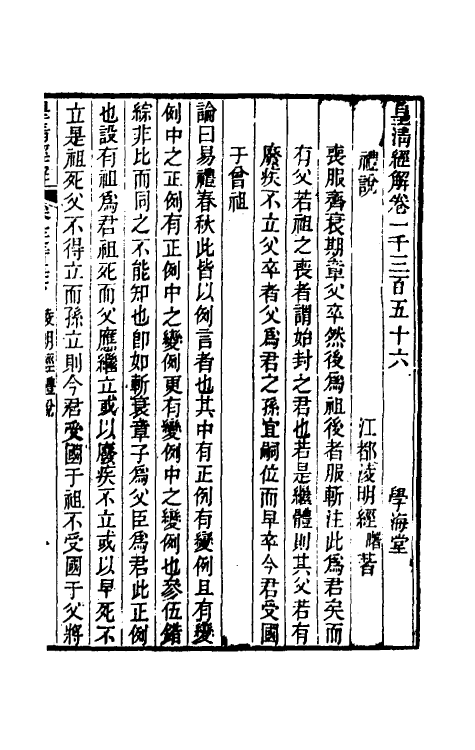 皇清經解卷一千三百五十六　學海堂
禮說　江都淩明經曙著
喪服齊衰期章父卒然後爲祖後者服斬注此爲君矣而
有父若祖之喪者謂始封之君也若是繼體則其父若有
廢疾不立父卒者父爲君之孫宜嗣位而早卒今君受國
于曾祖
論曰易禮春秋此皆以例言者也其中有正例有變例且有變
例中之正例有正例中之變例更有變例中之變例也參伍錯
綜非比而同之不能知也卽如斬衰章子爲父臣爲君此正例
也設有祖爲君祖死而父應繼立或以廢疾不立或以早死不
立是祖死父不得立而孫立則今君受國于祖不受國于父將
凌明經禮說